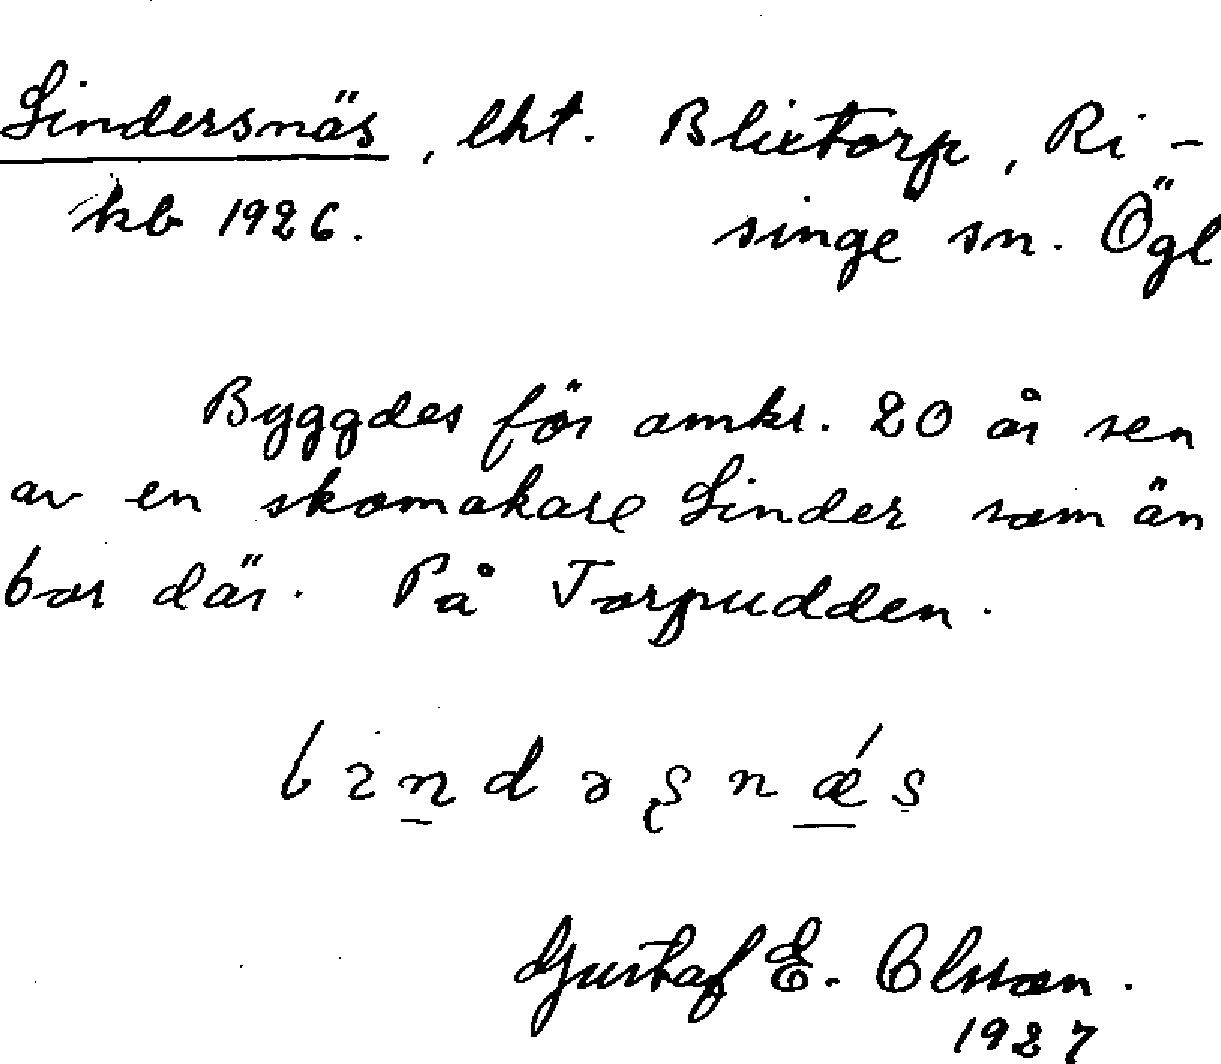 Lindersnäs, lht. Blixtorp, Ri-
kb 1926. singe sn. Ögl
Byggdes för omkr. 20 år sen
av en skomakare Linder som än
bor där. På Torpudden.
Gustaf E. Olsson.
1927